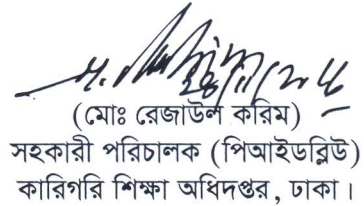 (মোঃ রেজাউল করিম)
সহকারী পরিচালক (পিআইডব্লিউ)
কারিগরি শিক্ষা অধিদপ্তর, ঢাকা।